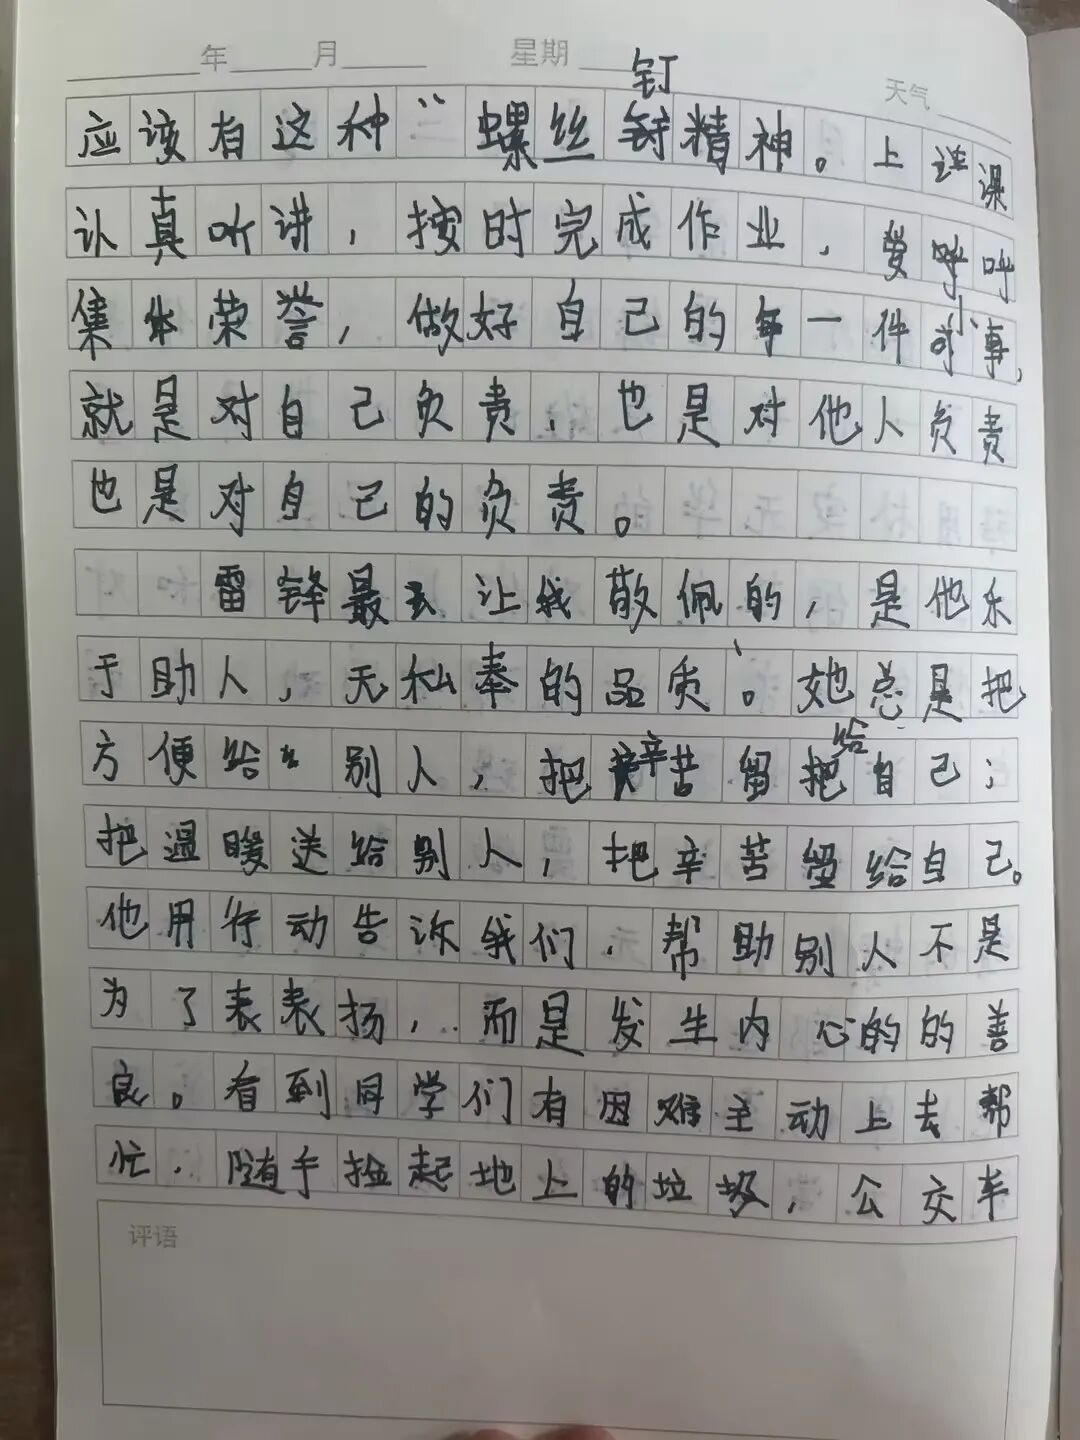 年 月 星期 天气
钉
应该有这种“螺丝钉精神。上课
认真听讲，按时完成作业，爱呼呼
集体荣誉，做好自己的每一件小事，
就是对自己负责，也是对他人负责
也是对自己的负责。
雷锋最让我敬佩的，是他乐
于助人，无私奉的品质。她总是把
给
方便给别人，把辛苦留把自己；
把温暖送给别人，把辛苦留给自己。
他用行动告诉我们，帮助别人不是
为了表表扬，而是发生内心的的善
良。看到同学们有困难主动上去帮
忙，随手捡起地上的垃圾，公交车
评语